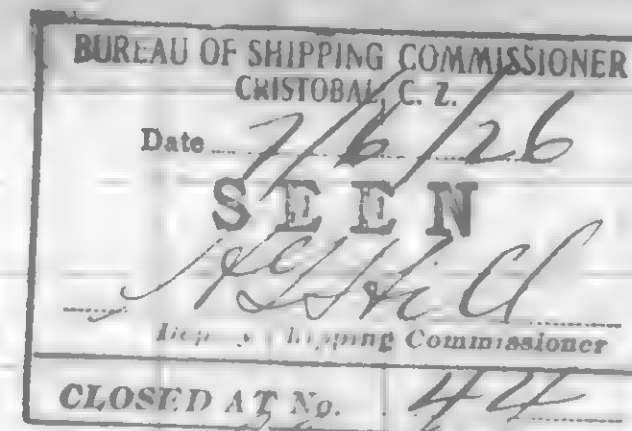 BUREAU OF SHIPPING COMMISSIONER
CRISTOBAL, C. Z.
Date 7/6/26
SEEN
Deputy Shipping Commissioner
CLOSED AT No. 44